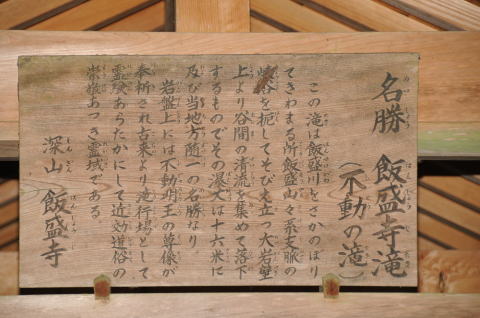 名勝 飯盛寺滝
（不動の滝）
この滝は飯盛川をさかのぼり
てきわまる所飯盛山々系支脈の
峡谷を扼してそびえ立つ大岩壁
上より谷間の清流を集めて落下
するものでその瀑丈は十六米に
及び当地方随一の名勝なり。
岩盤上には不動明王の尊像が
奉祈され古来より滝行場として
霊験あらたかにして近効道俗の
崇敬あつき霊域である。
深山 飯盛寺